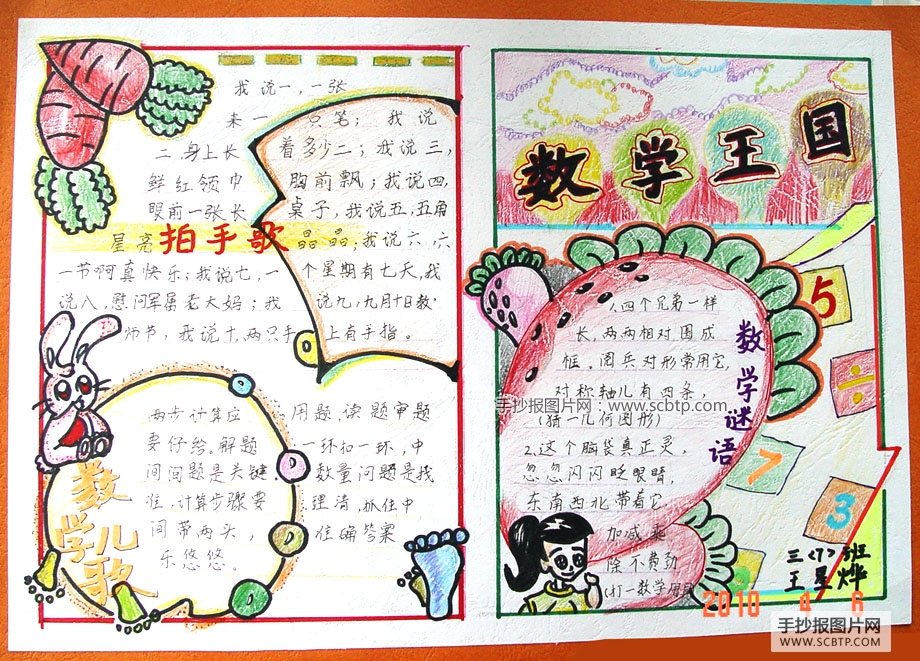 我说一，一张
来一 只笔；我说
二身上长 着多少二；我说三，
鲜红领巾 胸前飘；我说四，
眼前一张长 桌子，我说五，五角
星亮 晶晶；我说六 六
拍手歌
一节啊真快乐；我说七，一 个星期有七天，我
说八，慰问军属老大妈；我 说九，九月十日教
师节，我说十，两只手 上有手指。
两步计算应 用题，读题审题
要仔给。解题 一环扣一环，中
间问题是关键 数量问题是找
准，计算步骤要 理清，抓住中
间带两头， 准确答案
乐悠悠。
数学儿歌
数学王国
1.四个兄弟一样
长，两两相对围成
框。阅兵对形常用它，
对称轴儿有四条，
(猜一几何图形)
2.这个脑袋真正灵，
忽忽闪闪眨眼睛，
东南西北带着它，
加减乘
除不费劲
(打一数学用具
数学谜语
5
÷
7
3
三<7>班
王星烨
手抄报图片网：www.scbtp.com
2010 4 6
手抄报图片网
WWW.SCBTP.COM